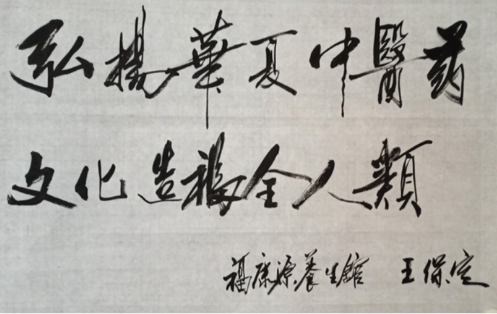 弘揚華夏中醫药
文化造福全人類
福康源養生館 王保定